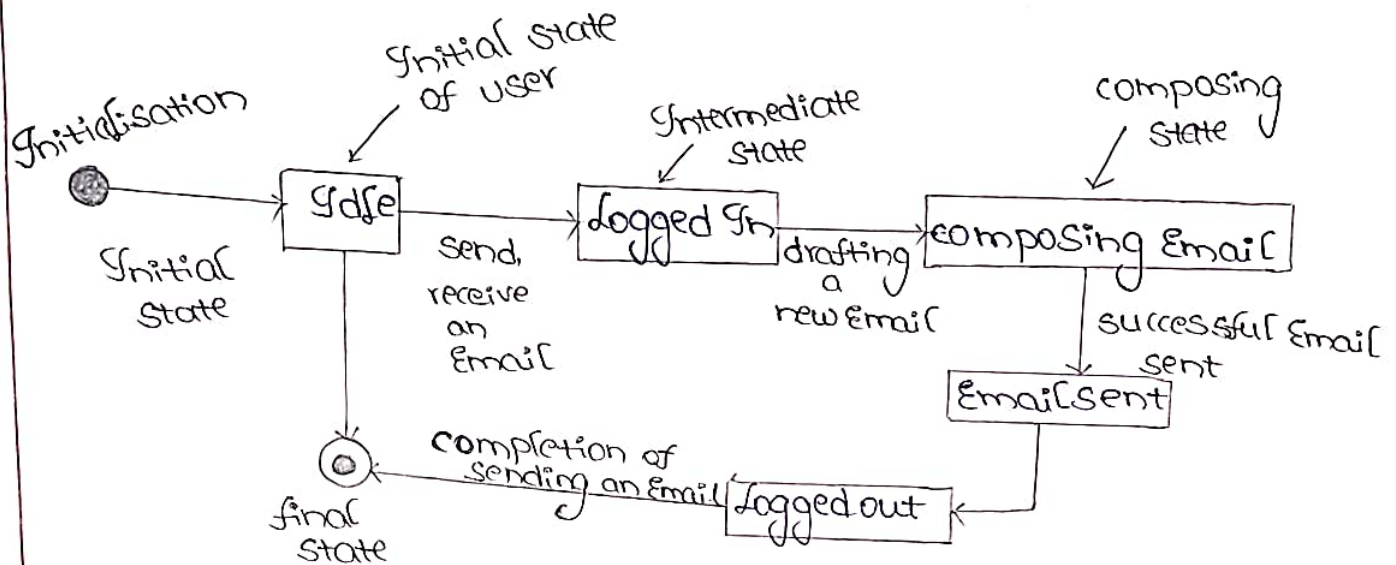 Initialisation
Initial state
of user
Intermediate
state
composing
state
Idle
Logged In
composing Email
Initial
state
send,
receive
an
Email
drafting
a
new Email
successful Email
sent
Email sent
completion of
sending an Email
Logged out
final
state